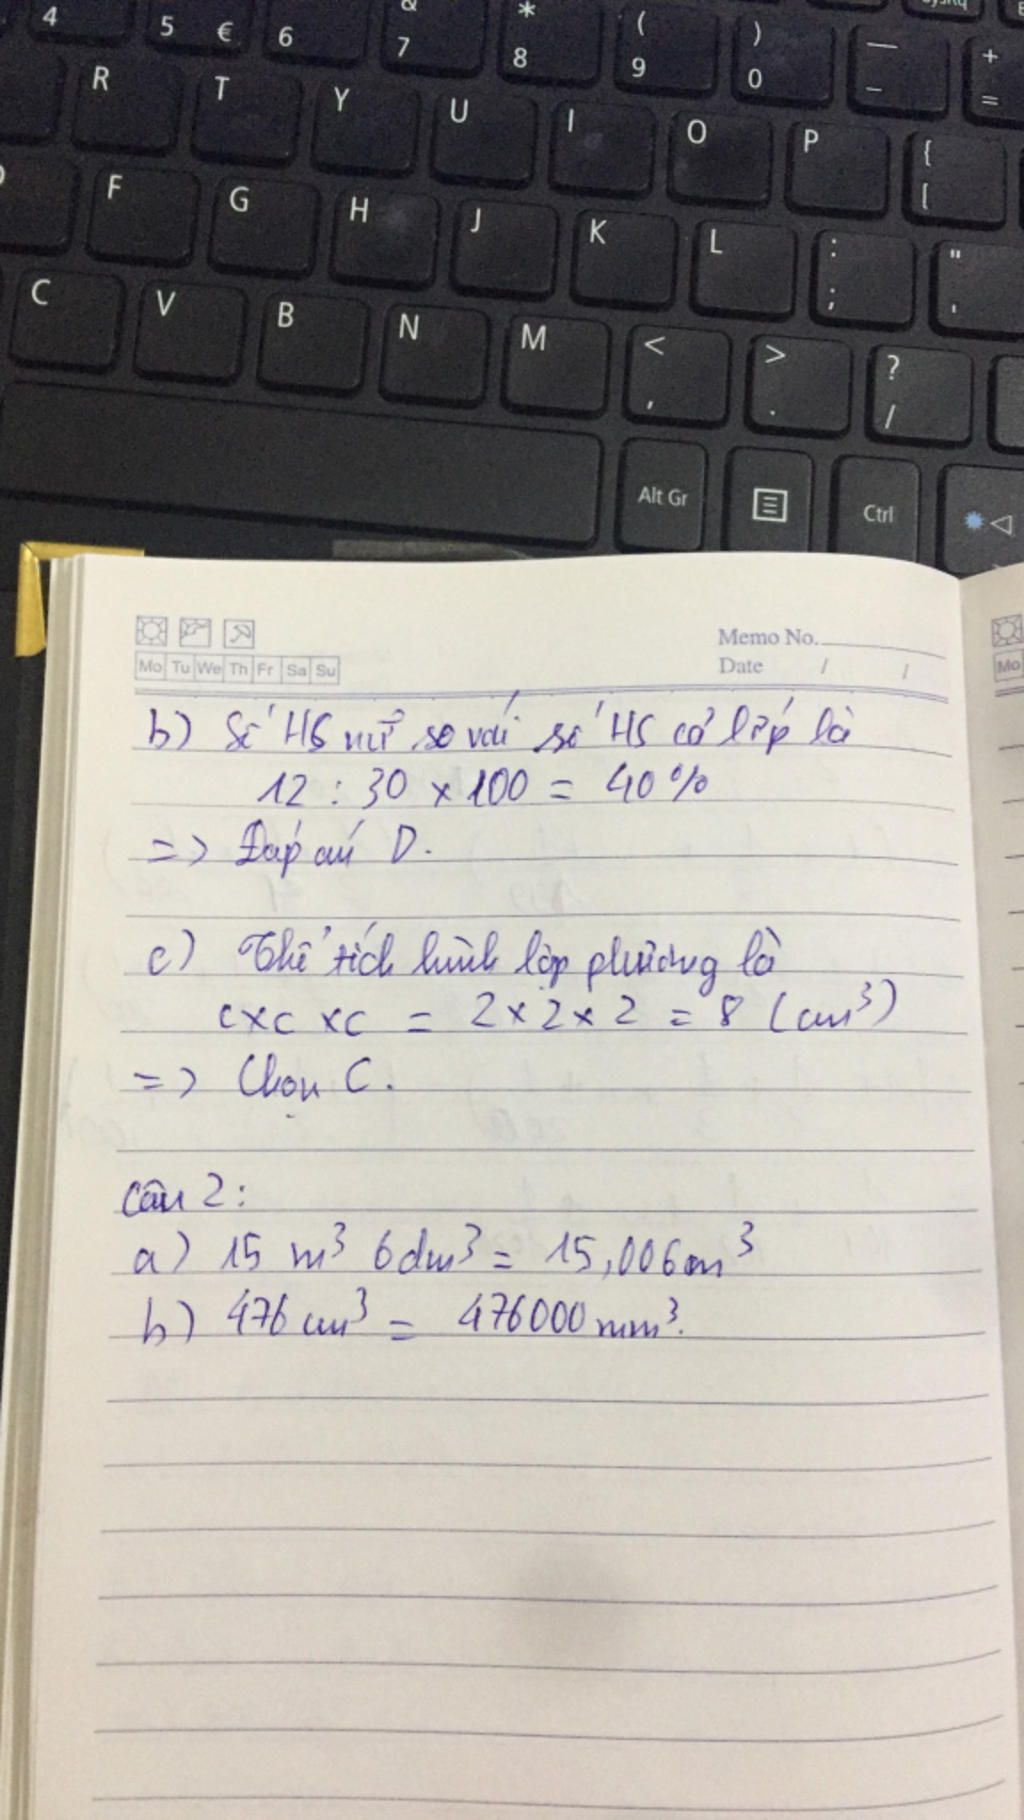 4 5 € 6 & 7 * 8 ( 9 ) 0 — - + =
R T Y U I O P { [
F G H J K L : ; " '
C V B N M < , > . ? /
Alt Gr Ctrl
Memo No.
Mo Tu We Th Fr Sa Su
Date / /
Mo
b) Số HS nữ so với số HS cả lớp là
12 : 30 x 100 = 40%
=> Đáp án D.
c) Thể tích hình lập phương là
c x c x c = 2 x 2 x 2 = 8 (cm³)
=> Chọn C.
Câu 2:
a) 15 m³ 6dm³ = 15,006m³
b) 476 cm³ = 476000 mm³.